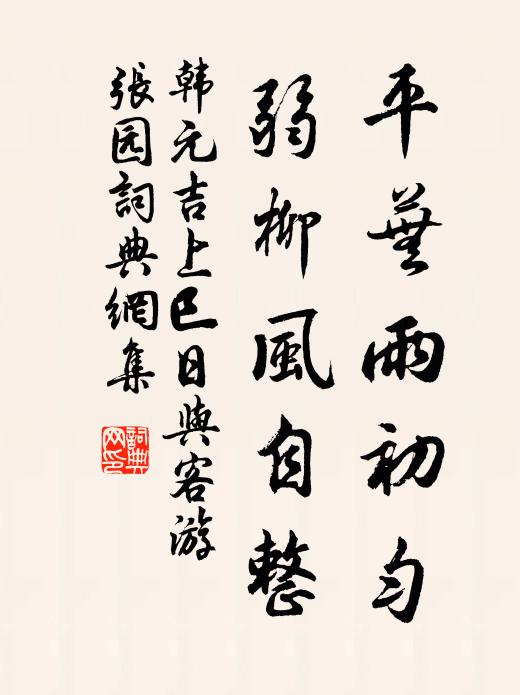 平蕪雨初勻
弱柳風自整
韩元吉上巳日與客游
張园詞典網集
詞典
网印